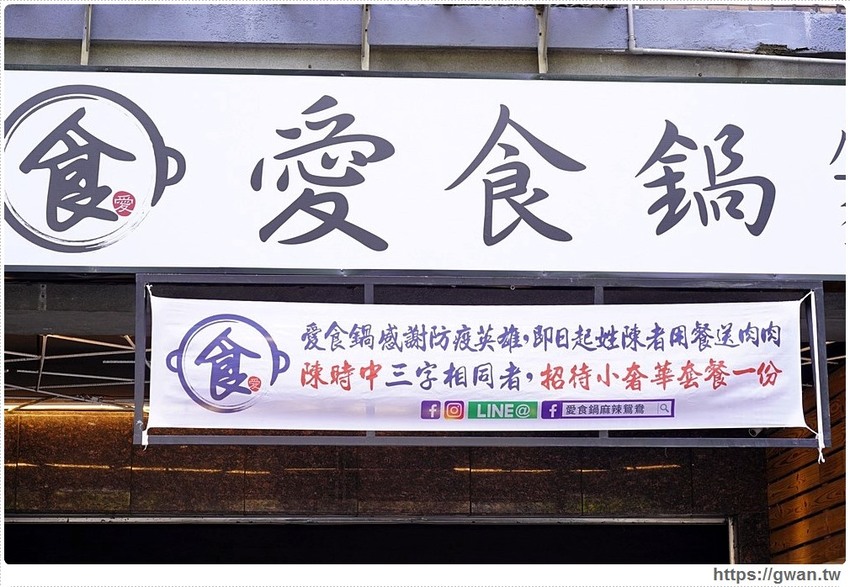 食 愛
愛食鍋
食 愛
愛食鍋感謝防疫英雄,即日起姓陳者用餐送肉肉
陳時中三字相同者,招待小奢華套餐一份
LINE@ 愛食鍋麻辣鴛鴦
https://gwan.tw